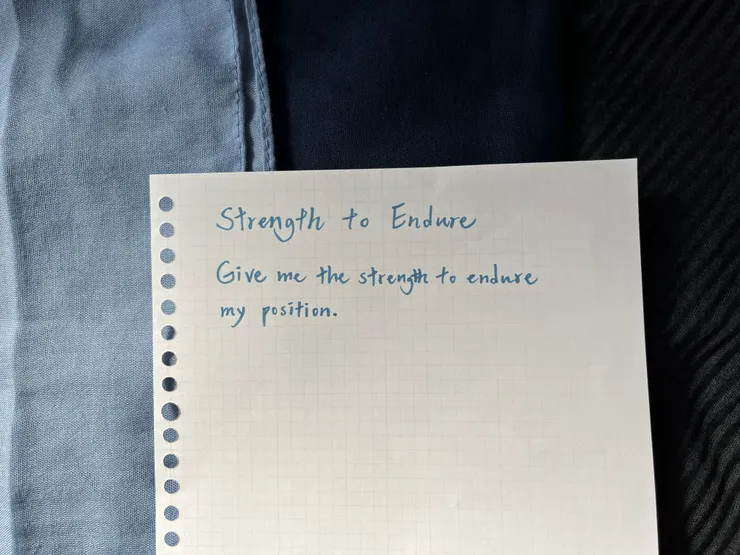 Strength to Endure
Give me the strength to endure
my position.